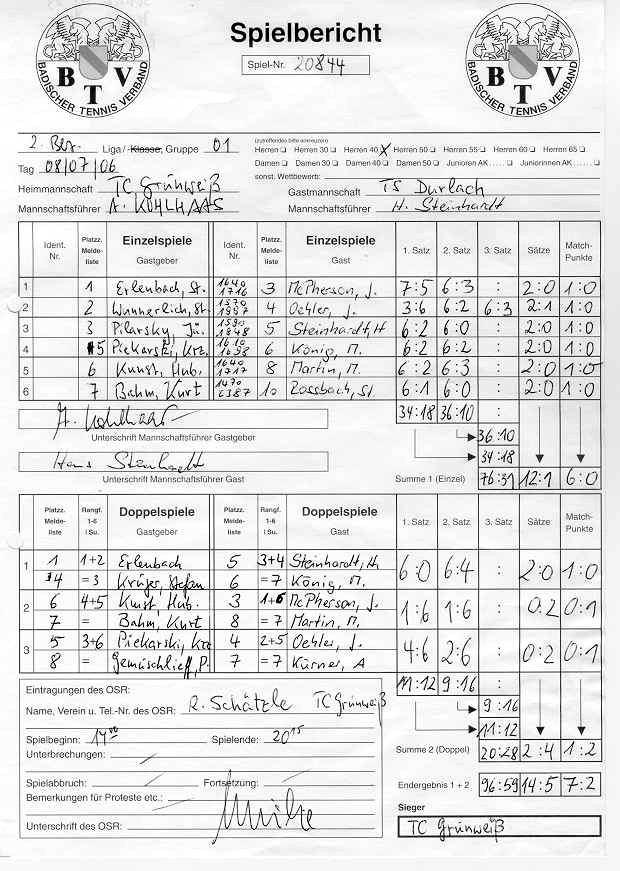 Spielbericht
Spiel-Nr. 20844
BTV
BADISCHER TENNIS VERBAND
BTV
BADISCHER TENNIS VERBAND
(zutreffendes bitte ankreuzen)
2. Bez. Liga / Klasse, Gruppe 01 Herren Herren 30 Herren 40 X Herren 50 Herren 55 Herren 60 Herren 65
Tag 08/07/06 Damen Damen 30 Damen 40 Damen 50 Junioren AK..... Juniorinnen AK.....
sonst. Wettbewerb:
Heimmannschaft TC Grünweiß Gastmannschaft TS Durlach
Mannschaftsführer A. KOHLHAAS Mannschaftsführer H. Steinhardt
Ident. Nr. Platzz. Meldeliste Einzelspiele Gastgeber Ident. Nr. Platzz. Meldeliste Einzelspiele Gast 1. Satz 2. Satz 3. Satz Sätze Match-Punkte
1 1 Erlenbach, St. 1640 1716 3 McPherson, J. 7:5 6:3 : 2:0 1:0
2 2 Wunnerlich, St. 1570 4 Oehler, J. 3:6 6:2 6:3 2:1 1:0
3 3 Pilarsky, Jü. 5 Steinhardt, H 6:2 6:0 : 2:0 1:0
4 5 Piekarski, Krz. 1610 1698 6 König, M. 6:2 6:2 : 2:0 1:0
5 6 Kunst, Hub. 1640 1717 8 Martin, M. 6:2 6:3 : 2:0 1:0
6 7 Bahm, Kurt 1470 10 Rossbach, St. 6:1 6:0 : 2:0 1:0
34:18 36:10 :
A. Kohlhaas
Unterschrift Mannschaftsführer Gastgeber
36:10
34:18
Hans Steinhardt
Unterschrift Mannschaftsführer Gast
Summe 1 (Einzel) 76:31 12:1 6:0
Platzz. Meldeliste Rangf. 1-6 / Su. Doppelspiele Gastgeber Platzz. Meldeliste Rangf. 1-6 / Su. Doppelspiele Gast 1. Satz 2. Satz 3. Satz Sätze Match-Punkte
1 1 1+2 Erlenbach 5 3+4 Steinhardt, H 6:0 6:4 : 2:0 1:0
4 =3 Krüger, Stefan 6 =7 König, M.
2 6 4+5 Kunst, Hub. 3 1+6 McPherson, J. 1:6 1:6 : 0:2 0:1
7 = Bahm, Kurt 8 =7 Martin, M.
3 5 3+6 Piekarski, Krz 4 2+5 Oehler, J. 4:6 2:6 : 0:2 0:1
8 = Gemüschlieff, P. 7 =7 Kürner, A
11:12 9:16 :
Eintragungen des OSR:
Name, Verein u. Tel.-Nr. des OSR: R. Schätzle TC Grünweiß
9:16
11:12
Spielbeginn: 14 00 Spielende: 20 15
Summe 2 (Doppel) 20:28 2:4 1:2
Unterbrechungen:
Spielabbruch: Fortsetzung:
Endergebnis 1 + 2 96:59 14:5 7:2
Bemerkungen für Proteste etc.:
Sieger
Unterschrift des OSR:
TC Grünweiß